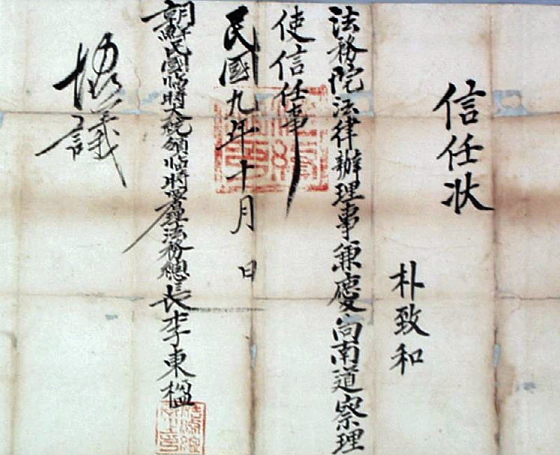 信任状
朴致和
法務院法律辦理事兼慶尙南道察理
使信任事
民國九年十月 日
朝鮮民國臨時大統領臨時署理法務總長李東楹